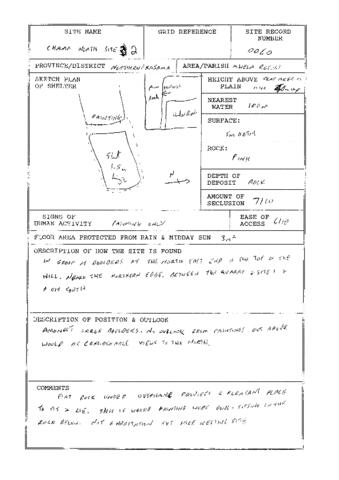 SITE NAME
GRID REFERENCE
SITE RECORD NUMBER
CHAMP NORTH SITE 2
0060
PROVINCE/DISTRICT NORTHERN/KASAMA
AREA/PARISH MWELA ROCKS
SKETCH PLAN OF SHELTER
PAINTING
Flat
1.5m
N
HEIGHT ABOVE PLAIN
NEAREST WATER 100m
SURFACE:
SMOOTH
ROCK:
PINK
DEPTH OF DEPOSIT ROCK
AMOUNT OF SECLUSION 7/10
SIGNS OF HUMAN ACTIVITY PAINTING ONLY
EASE OF ACCESS 6/10
FLOOR AREA PROTECTED FROM RAIN & MIDDAY SUN 3m²
DESCRIPTION OF HOW THE SITE IS FOUND
IN GROUP OF BOULDERS AT THE NORTH EAST END ON TOP OF THE
HILL, NEAR THE NORTHERN EDGE. BETWEEN THE QUARRY & SITE 1
DESCRIPTION OF POSITION & OUTLOOK
AMONGST LARGE BOULDERS. NO OUTLOOK FROM PAINTINGS BUT ABOVE
WOULD BE VIEWS TO THE NORTH.
COMMENTS
FLAT ROCK UNDER OVERHANG PROVIDES A PLEASANT PLACE
TO SIT & LIE. THIS IS WHERE PAINTING WERE DONE - SITTING ON THE
ROCK BELOW. NOT HABITATION BUT NICE RESTING SITE